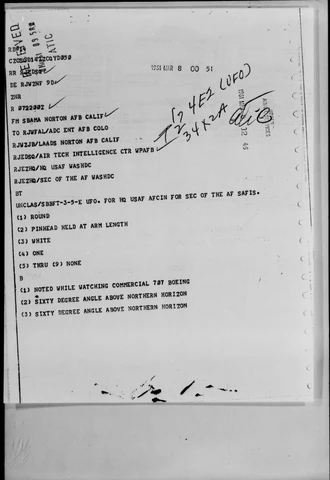 RECEIVED
1961 MAR 8 00 51
DE RJWZNF 9D
ZNR
R 072200Z
FM SBAMA NORTON AFB CALIF
TO RJWFAL/ADC ENT AFB COLO
RJWZJB/LAADS NORTON AFB CALIF
RJEDSQ/AIR TECH INTELLIGENCE CTR WPAFB
RJEZHQ/HQ USAF WASHDC
RJEZHQ/SEC OF THE AF WASHDC
BT
UNCLAS/SBBFT-3-5-E UFO. FOR HQ USAF AFCIN FOR SEC OF THE AF SAFIS.
(1) ROUND
(2) PINHEAD HELD AT ARM LENGTH
(3) WHITE
(4) ONE
(5) THRU (9) NONE
B
(1) NOTED WHILE WATCHING COMMERCIAL 707 BOEING
(2) SIXTY DEGREE ANGLE ABOVE NORTHERN HORIZON
(3) SIXTY DEGREE ANGLE ABOVE NORTHERN HORIZON
4E2 (UFO)
34X2A
12 46